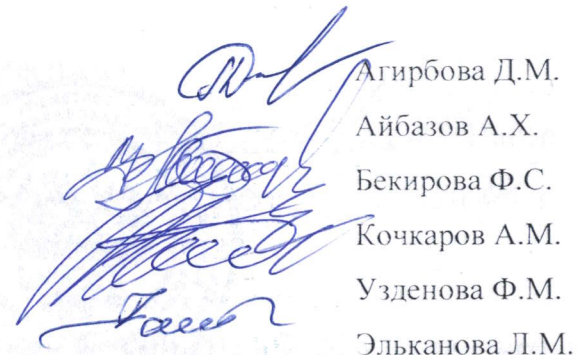 Агирбова Д.М.
Айбазов А.Х.
Бекирова Ф.С.
Кочкаров А.М.
Узденова Ф.М.
Эльканова Л.М.